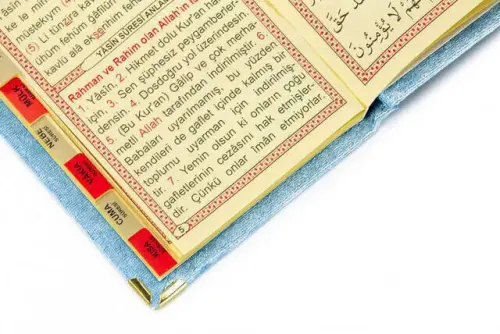 (5) Li
ühum fehum gâfilûn
kavlu alâ ekserihim fehum
YÂSİN SÛRESİ ANLAMI
Rahman ve Rahim olan Allah'ın
1. Yâsîn. 2. Hikmet dolu Kur'an hakkı
için, 3. Sen şüphesiz peygamberler-
densin. 4. Dosdoğru yol üzerindesin.
5. (Bu Kur'an) Galip ve çok merha-
metli Allah tarafından indirilmiştir. 6.
Babaları uyarılmamış, bu yüzden
kendileri de gaflet içinde kalmış bir
toplumu uyarman için indirilmiş-
tir. 7. Yemin olsun ki onların çoğu
gafletlerinin cezasını hak etmişler-
dir. Çünkü onlar îmân etmiyorlar.
5
MÜLK
SÛRESİ
NEBE
SÛRESİ
VAKIA
SÛRESİ
CUMA
SÛRESİ
KISA
حَقَّ
لَا يُؤْمِنُونَ